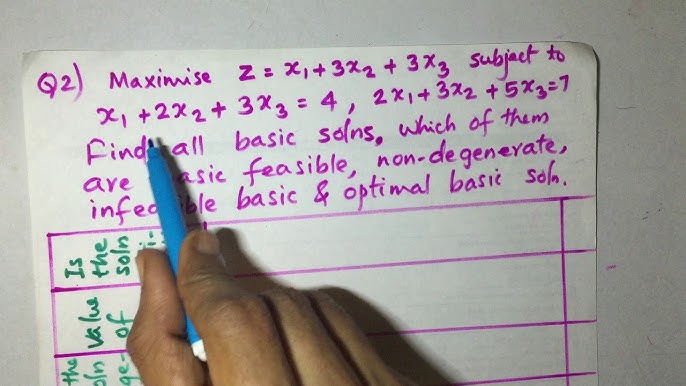 Q2) Maximise Z = x₁ + 3x₂ + 3x₃ subject to
x₁ + 2x₂ + 3x₃ = 4 , 2x₁ + 3x₂ + 5x₃ = 7
Find all basic solns. which of them
are basic feasible, non-degenerate,
infeasible basic & optimal basic soln.
Is
the
soln
value
of
the